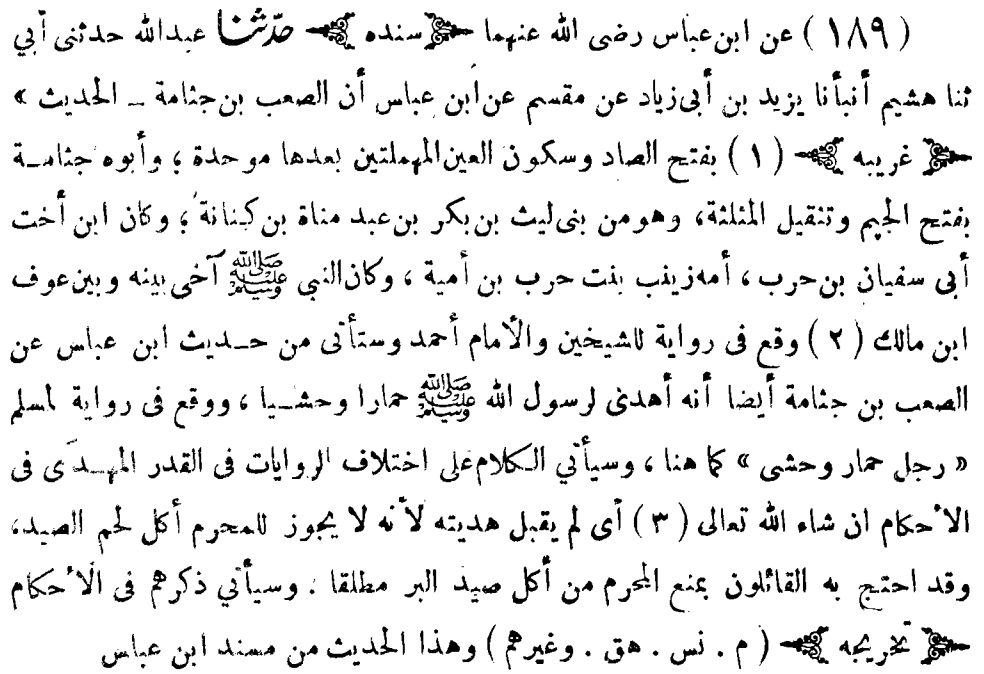 ( ١٨٩ ) عن ابن عباس رضى الله عنهما ﴿ سنده ﴾ حدّثنا عبدالله حدثنى أبي
ثنا هشيم أنبأنا يزيد بن أبى زياد عن مقسم عن ابن عباس أن الصعب بن جثامة ــ الحديث »
﴿ غريبه ﴾ ( ١ ) بفتح الصاد وسكون العين المهملتين بعدها موحدة ؛ وأبوه جثامــة
بفتح الجيم وتثقيل المثلثة، وهو من بنى ليث بن بكر بن عبد مناة بن كـنانة ؛ وكان ابن أخت
أبى سفيان بن حرب ، أمه زينب بنت حرب بن أمية ، وكان النبي ﷺ آخى بينه وبين عوف
ابن مالك ( ٢ ) وقع فى رواية للشيخين والأمام أحمد وستأتى من حــديث ابن عباس عن
الصعب بن جثامة أيضا أنه أهدى لرسول الله ﷺ حمارا وحشــيا ، ووقع فى رواية لمسلم
« رجل حمار وحشى » كما هنا ، وسيأتي الـكلام على اختلاف الروايات فى القدر المهــدَى فى
الأحكام ان شاء الله تعالى ( ٣ ) أى لم يقبل هديته لأنه لا يجوز للمحرم أكل لحم الصيد،
وقد احتج به القائلون بمنع المحرم من أكل صيد البر مطلقا . وسيأتي ذكرهم فى الأحكام
﴿ تخريجه ﴾ ( م . نس . هق . وغيرهم ) وهذا الحديث من مسند ابن عباس